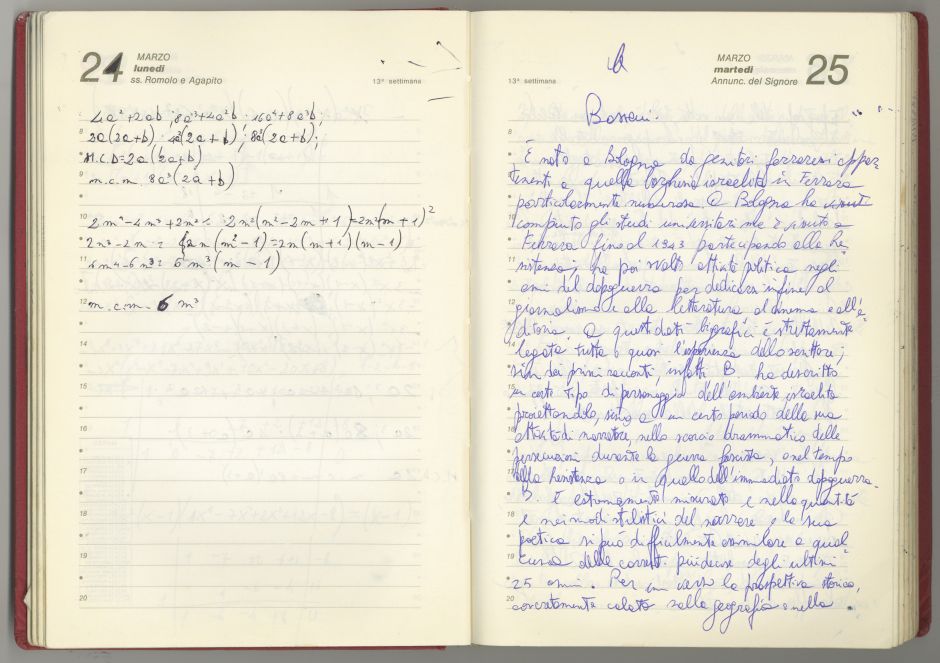 24 MARZO
lunedì
ss. Romolo e Agapito
13ª settimana
4a²+2ab, 8a³+4a²b · 16a⁴+8a³b,
2a(2a+b) · 4a²(2a+b), 8a³(2a+b);
M.C.D=2a(2a+b)
m.c.m. 8a³(2a+b)
2m⁴-4m³+2m² = 2m²(m²-2m+1)=2m²(m+1)²
2m³-2m = 2m(m²-1)=2m(m+1)(m-1)
6m⁴-6m³= 6m³(m-1)
m.c.m- 6 m³
8
9
10
11
12
13
14
15
16
17
18
19
20
13ª settimana
MARZO
martedì
Annunc. del Signore
25
Bassani.
È nato a Bologna da genitori ferraresi appar
tenenti a quella borghesia israelita in Ferrara
particolarmente numerosa. A Bologna ha
compiuto gli studi universitari ma è vissuto a
Ferrara fino al 1943 partecipando alla Re
sistenza, ha poi svolto attività politica negli
anni del dopoguerra per dedicarsi infine al
giornalismo e alla letteratura al cinema e all'e
ditoria. A questi dati biografici è strettamente
legata tutta o quasi l'esperienza dello scrittore;
sin dai primi racconti, infatti B. ha descritto
un certo tipo di personaggio dell'ambiente israelita
proiettandolo, sino a un certo periodo della sua
attività di narratore, nello scorcio drammatico delle
persecuzioni durante la guerra fascista, o nel tempo
della Resistenza o in quello dell'immediato dopoguerra.
B. è estremamente misurato e nella quantità
e nei modi stilistici del narrare e la sua
poetica si può difficilmente assimilare a qual
cuna delle correnti più decise degli ultimi
25 anni. Per un verso la prospettiva storica,
concretamente calata nella geografia e nella
8
9
10
11
12
13
14
15
16
17
18
19
20